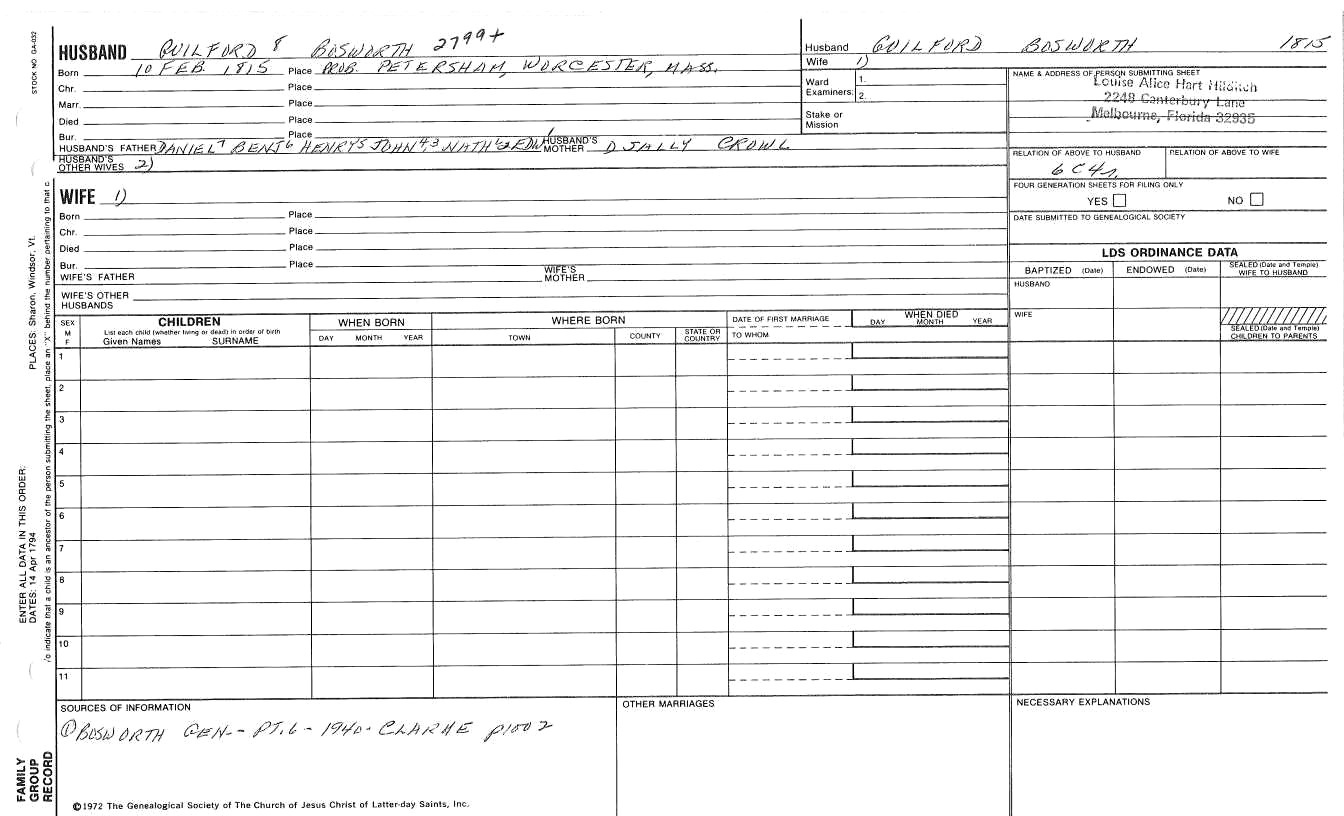 STOCK NO. GA-032
HUSBAND GUILFORD 8 BOSWORTH 2799+
Born 10 FEB. 1815 Place PROB. PETERSHAM, WORCESTER, MASS.
Chr. Place
Marr. Place
Died Place
Bur. Place
HUSBAND'S FATHER DANIEL7 BENJ6 HENRY5 JOHN4,3 NATH2 EDW1 HUSBAND'S MOTHER D SALLY CROWL
HUSBAND'S OTHER WIVES 2)
Husband GUILFORD BOSWORTH 1815
Wife 1)
Ward 1.
Examiners: 2.
Stake or
Mission
NAME & ADDRESS OF PERSON SUBMITTING SHEET
Louise Alice Hart Hilditch
2248 Canterbury Lane
Melbourne, Florida 32935
RELATION OF ABOVE TO HUSBAND RELATION OF ABOVE TO WIFE
6C4r.
FOUR GENERATION SHEETS FOR FILING ONLY
YES NO
DATE SUBMITTED TO GENEALOGICAL SOCIETY
WIFE 1)
Born Place
Chr. Place
Died Place
Bur. Place
WIFE'S FATHER WIFE'S MOTHER
WIFE'S OTHER
HUSBANDS
LDS ORDINANCE DATA
BAPTIZED (Date) ENDOWED (Date) SEALED (Date and Temple) WIFE TO HUSBAND
HUSBAND
WIFE
SEALED (Date and Temple)
CHILDREN TO PARENTS
SEX M F
CHILDREN
List each child (whether living or dead) in order of birth
Given Names SURNAME
WHEN BORN
DAY MONTH YEAR
WHERE BORN
TOWN COUNTY STATE OR COUNTRY
DATE OF FIRST MARRIAGE
TO WHOM
WHEN DIED
DAY MONTH YEAR
1
2
3
4
5
6
7
8
9
10
11
SOURCES OF INFORMATION
① BOSWORTH GEN-- PT.6 - 1940- CLARKE p1002
OTHER MARRIAGES
NECESSARY EXPLANATIONS
©1972 The Genealogical Society of The Church of Jesus Christ of Latter-day Saints, Inc.
FAMILY
GROUP
RECORD
ENTER ALL DATA IN THIS ORDER:
DATES: 14 Apr 1794
PLACES: Sharon, Windsor, Vt.
To indicate that a child is an ancestor of the person submitting the sheet, place an "X" behind the number pertaining to that c